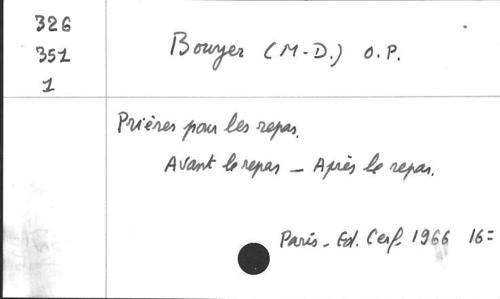 326
351
1
Bouyer (M-D.) O.P.
Prières pour les repas.
Avant le repas - Après le repas.
Paris - Ed. Cerf. 1966 16=